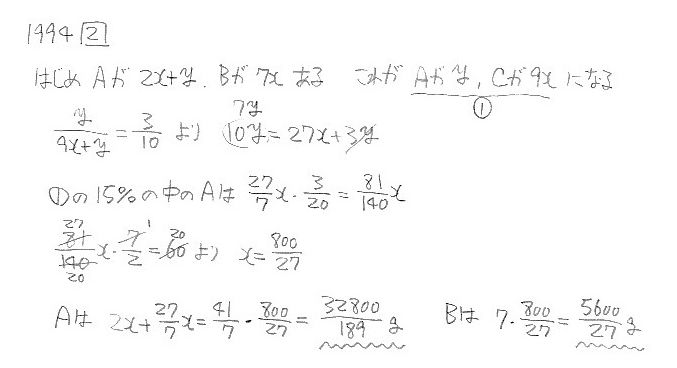 1994 2
はじめ Aが 2x+y, Bが 7x ある これが Aがy, Cが9x になる
①
y/(9x+y) = 3/10 より 10y = 27x+3y 7y
①の15%の中のAは 27/7 x・3/20 = 81/140 x
81/140 x・7/2 = 60 より x = 800/27
27 20 1 20
Aは 2x+27/7 x = 41/7・800/27 = 32800/189 g Bは 7・800/27 = 5600/27 g